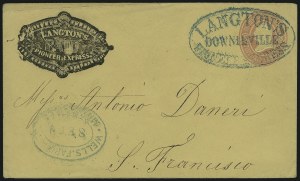 LANGTON'S
PIONEER EXPRESS
LANGTON'S
DOWNIEVILLE
WELLS, FARGO
Messrs Antonio Daneri
S. Francisco